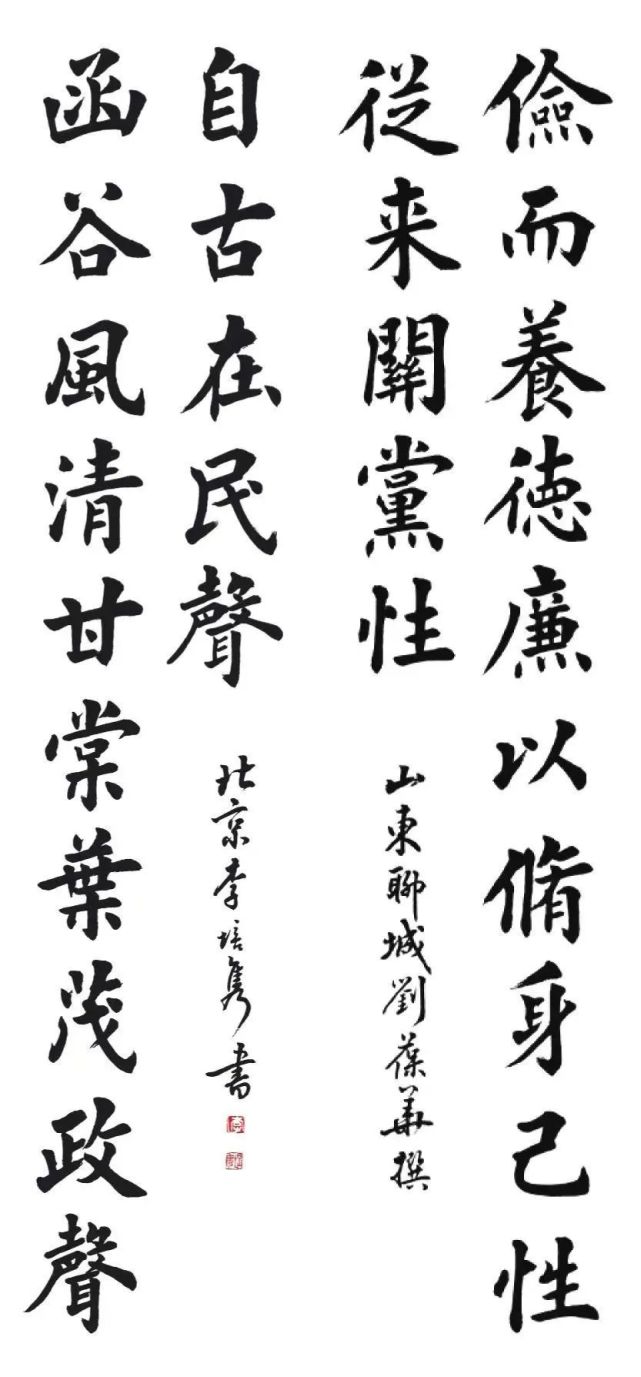 儉而養徳廉以脩身己性
従来關黨性
山東聊城劉葆華撰
函谷風清甘棠葉茂政聲
自古在民聲
北京李培雋書